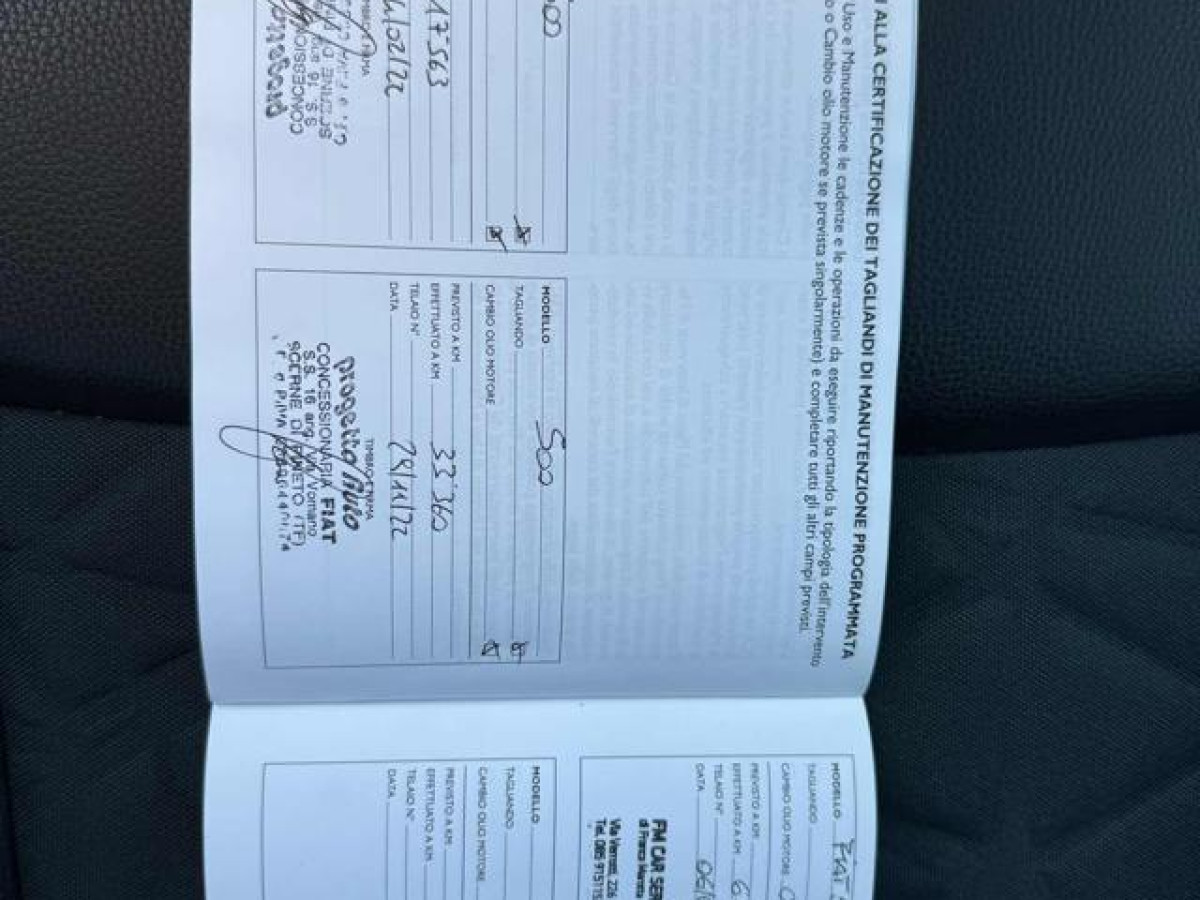 I ALLA CERTIFICAZIONE DEI TAGLIANDI DI MANUTENZIONE PROGRAMMATA
Uso e Manutenzione le cadenze e le operazioni da eseguire riportando la tipologia dell'intervento
o Cambio olio motore se prevista singolarmente) e completare tutti gli altri campi previsti.
500
17563
/02/22
CONCESSIONARIA
S.S. 16
MODELLO 500
TAGLIANDO
CAMBIO OLIO MOTORE
PREVISTO A KM
EFFETTUATO A KM 33360
TELAIO N°
DATA 28/11/22
TIMBRO E FIRMA
progetto Auto
CONCESSIONARIA FIAT
S.S. 16 ang. Via Vomano
SCERNE DI PINETO (TE)
MODELLO FIAT
TAGLIANDO
CAMBIO OLIO MOTORE
PREVISTO A KM
EFFETTUATO A KM 6
TELAIO N°
DATA 06/
FM CAR SER
di Franco
Via 226
Tel. 085 975115
MODELLO
TAGLIANDO
CAMBIO OLIO MOTORE
PREVISTO A KM
EFFETTUATO A KM
TELAIO N°
DATA